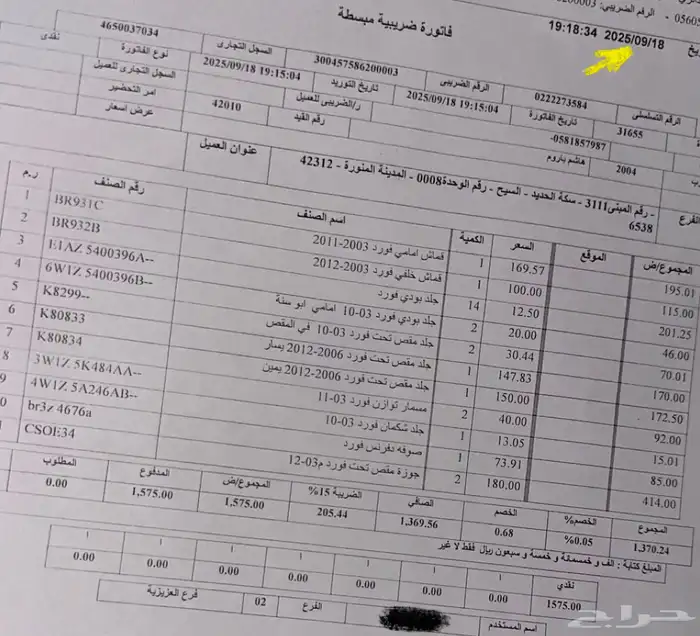 0200003 - الرقم الضريبي:
05605
فاتورة ضريبية مبسطة
2025/09/18 19:18:34
الرقم التسلسلى 0222273584 الرقم الضريبى 300457586200003 السجل التجارى 4650037034
31655 تاريخ الفاتورة 2025/09/18 19:15:04 تاريخ التوريد 2025/09/18 19:15:04 نوع الفاتورة نقدى
-0581857987 ر/الضريبى للعميل السجل التجارى للعميل
2004 هاشم باروم رقم القيد 42010 امر التحضير عرض اسعار
الفرع - رقم المبنى3111 - سكة الحديد - السيح - رقم الوحدة0008 - المدينة المنورة - 42312 عنوان العميل
6538
ر.م رقم الصنف اسم الصنف الكمية السعر الموقع المجموع/ض
1 BR931C قماش امامي فورد 2003-2011 1 169.57 195.01
2 BR932B قماش خلفي فورد 2003-2012 1 100.00 115.00
3 E1AZ 5400396A-- جلد بودي فورد 14 12.50 201.25
4 6W1Z 5400396B-- جلد بودي فورد 03-10 امامي ابو سنة 2 20.00 46.00
5 K8299-- جلد مقص تحت فورد 03-10 في المقص 2 30.44 70.01
6 K80833 جلد مقص تحت فورد 2006-2012 يسار 1 147.83 170.00
7 K80834 جلد مقص تحت فورد 2006-2012 يمين 1 150.00 172.50
8 3W1Z 5K484AA-- مسمار توازن فورد 03-11 2 40.00 92.00
9 4W1Z 5A246AB-- جلد شكمان فورد 03-10 1 13.05 15.01
0 br3z 4676a صوفه دفرنس فورد 1 73.91 85.00
CSOE34 جوزة مقص تحت فورد م03-12 2 180.00 414.00
المجموع الخصم% الخصم الصافي الضريبة 15% المجموع/ض المدفوع المطلوب
1,370.24 %0.05 0.68 1,369.56 205.44 1,575.00 1,575.00 0.00
المبلغ كتابة : الف و خمسمائة و خمسة و سبعون ريال فقط لا غير
نقدي ا ا ا ا ا ا ا
1575.00 0.00 0.00 0.00 0.00 0.00 0.00 0.00
اسم المستخدم الفرع 02 فرع العزيزية
حراج